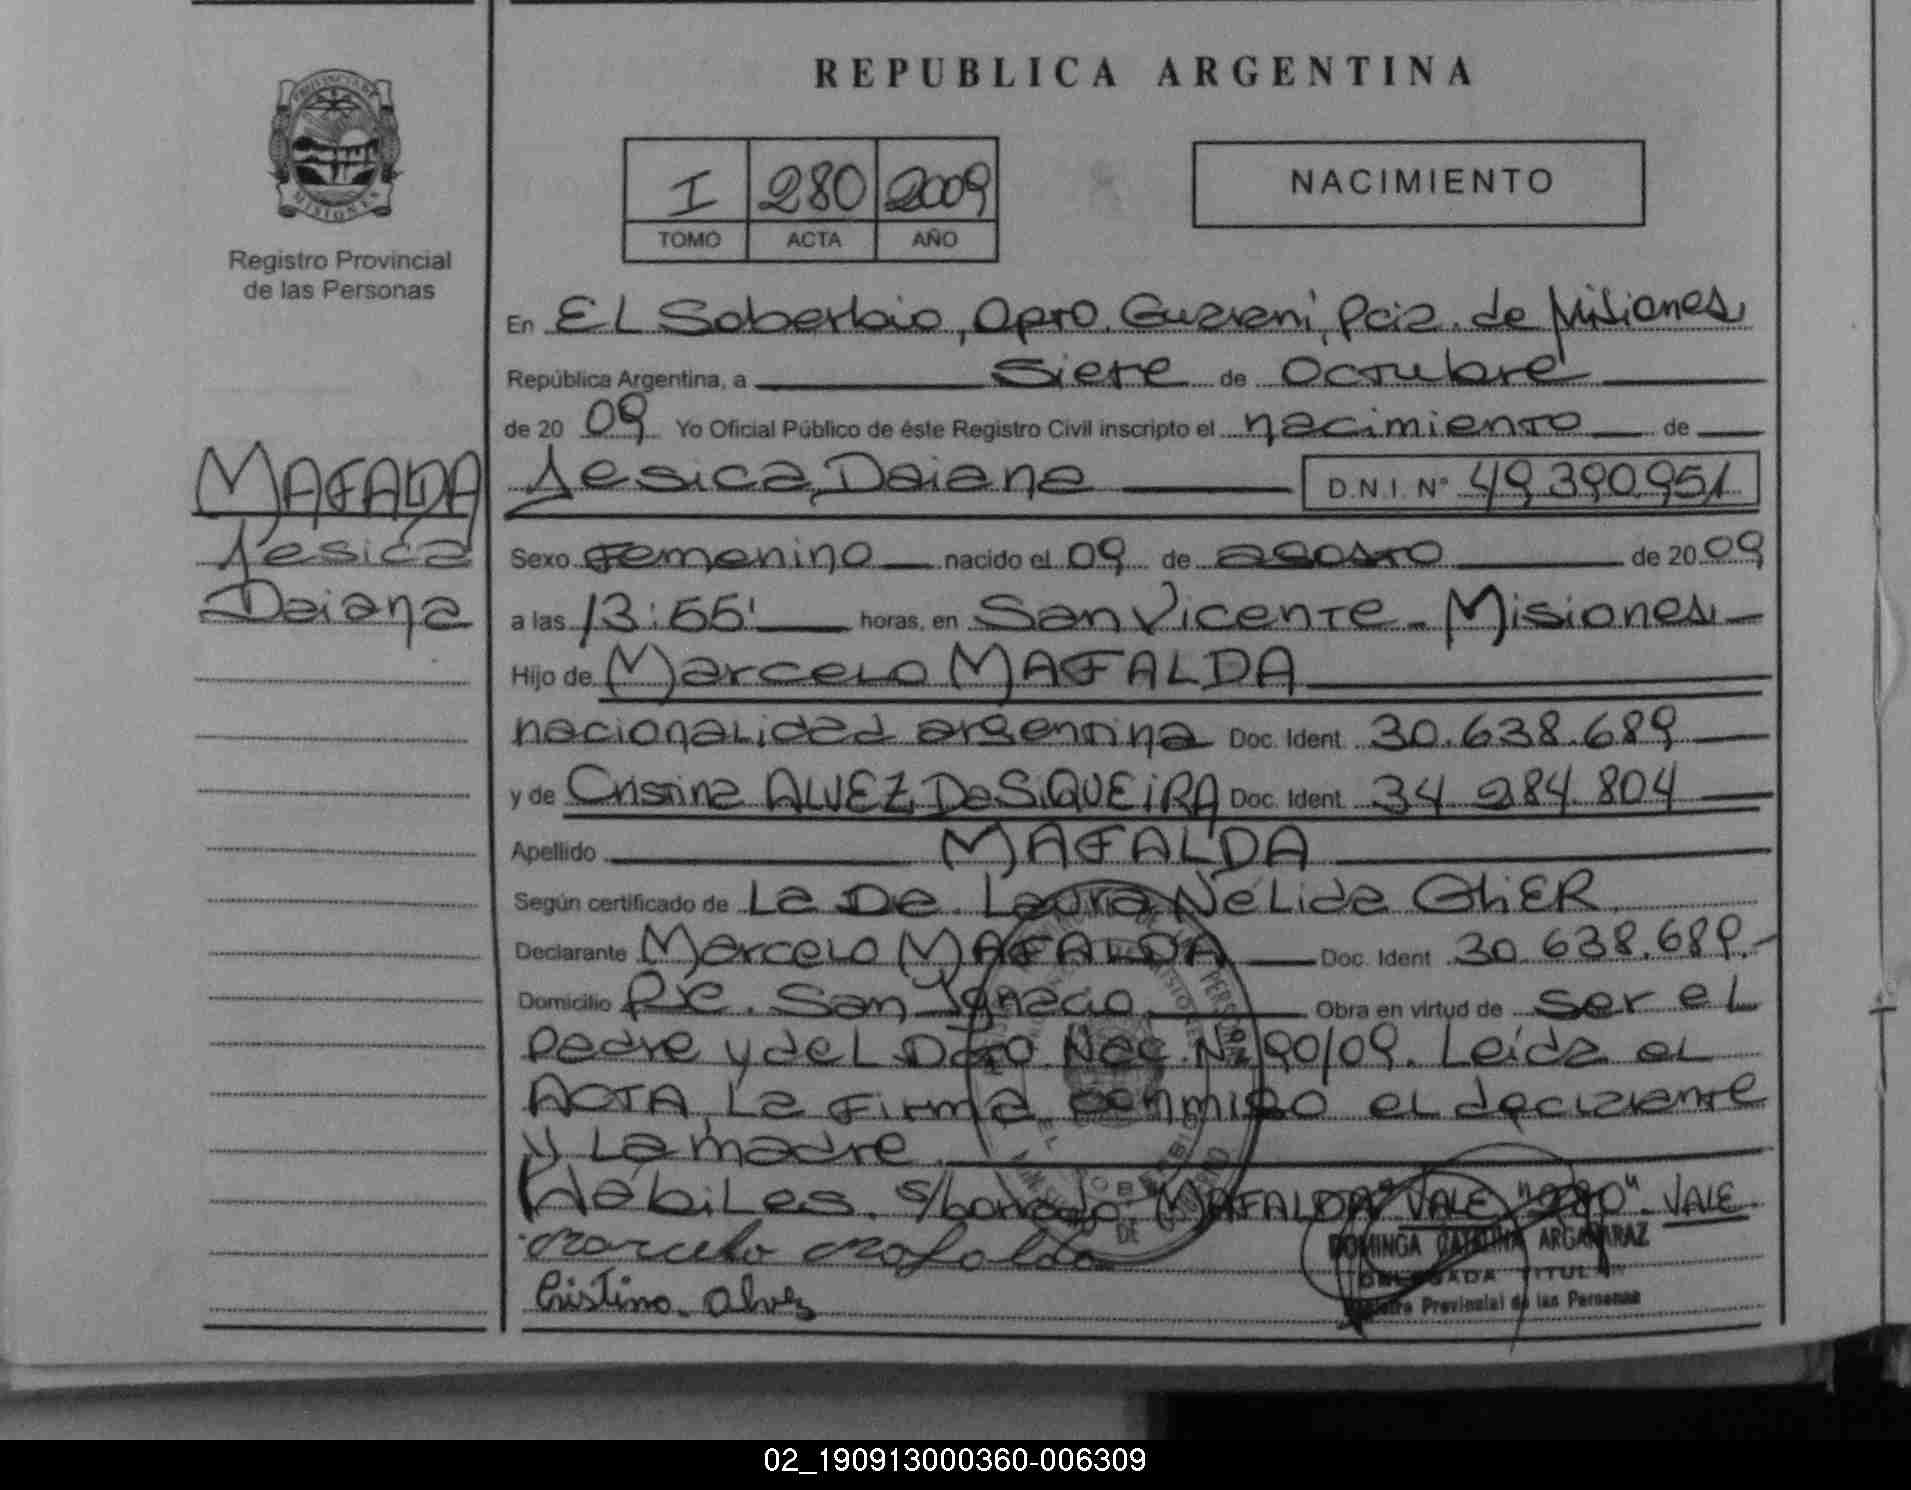 REPUBLICA ARGENTINA
PROVINCIA DE
MISIONES
Registro Provincial
de las Personas
I 280 2009
TOMO ACTA AÑO
NACIMIENTO
En EL Soberbio, Dpto. Guarani, Pcia. de Misiones
República Argentina, a siete de Octubre
de 20 09 Yo Oficial Público de éste Registro Civil inscripto el nacimiento de
MAFALDA
Jesica Daiana
Jesica Daiana D.N.I. N° 49.390.951
Sexo Femenino nacido el 09 de agosto de 20 09
a las 13:55' horas, en San Vicente - Misiones
Hijo de Marcelo MAFALDA
nacionalidad argentina Doc. Ident. 30.638.689
y de Cristina ALVEZ De SIQUEIRA Doc. Ident. 34.284.804
Apellido MAFALDA
Según certificado de La De. Laura Nélida GhiER
Declarante Marcelo MAFALDA Doc. Ident. 30.638.689.-
Domicilio Pje. San Ignacio Obra en virtud de ser el
padre y del Dpto. Nac. N° 90/09. Leida el
ACTA, La firma conmigo el declarante
y La madre.
Hábiles. s/borrado: "MAFALDA" VALE "280". VALE
Marcelo Mafalda
Cristina Alvez
DOMINGA CATALINA ARGAÑARAZ
DELEGADA TITULAR
Registro Provincial de las Personas
02_190913000360-006309